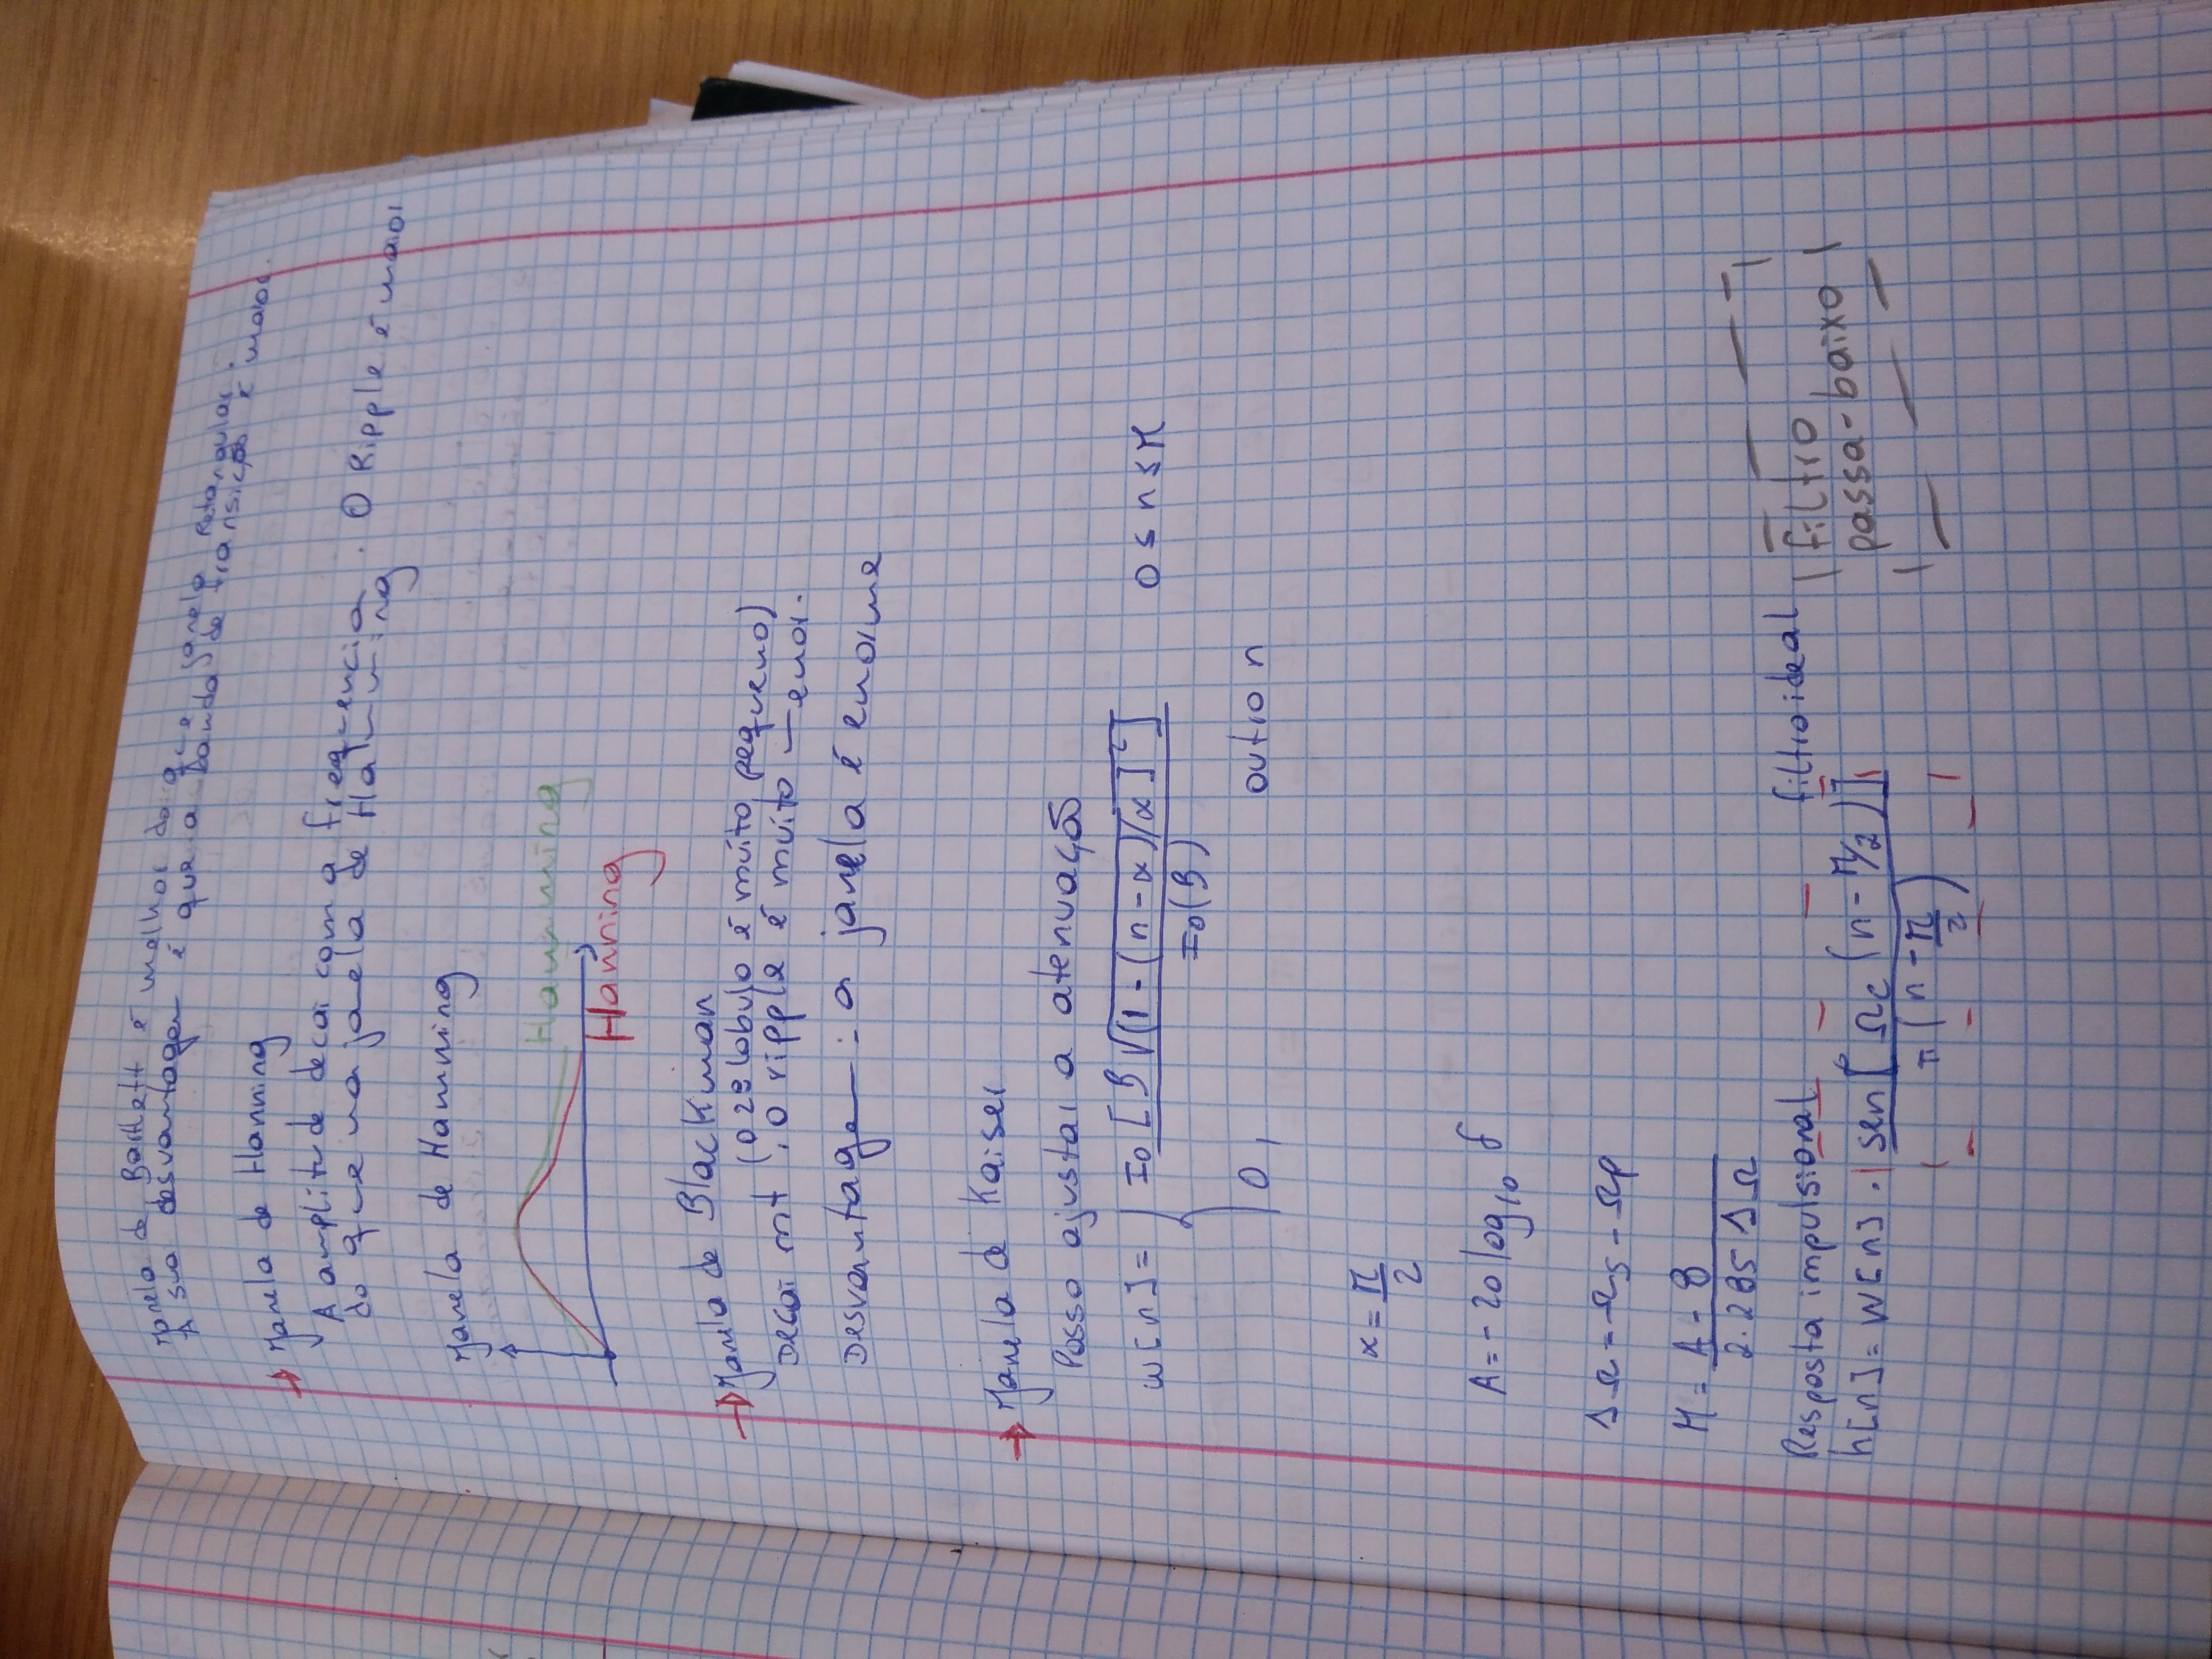 Janela de Bartlett é melhor do que janela Retangular.
A sua desvantagem é que a banda de transição é maior.
→ Janela de Hanning
A amplitude decai com a frequencia. O Ripple é maior
do que na janela de Hamming
Janela de Hamming
Hamming
Hanning
→ Janela de Blackman
(O 2º lobulo é muito pequeno)
Decai mt. O ripple é muito menor.
Desvantagem: a janela é enorme
→ Janela de Kaiser
Posso ajustar a atenuação
w[n] = { I0[β√(1-(n-α)/α]²] / I0(β)   0≤n≤M
0,   outro n
α = M/2
A = -20 log10 δ
ΔΩ = Ωs - Ωp
M = A - 8 / 2.285 ΔΩ
Resposta impulsional   filtro ideal
h[n] = w[n] . sen[Ωc(n - M/2)] / π(n - M/2)
filtro
passa-baixo